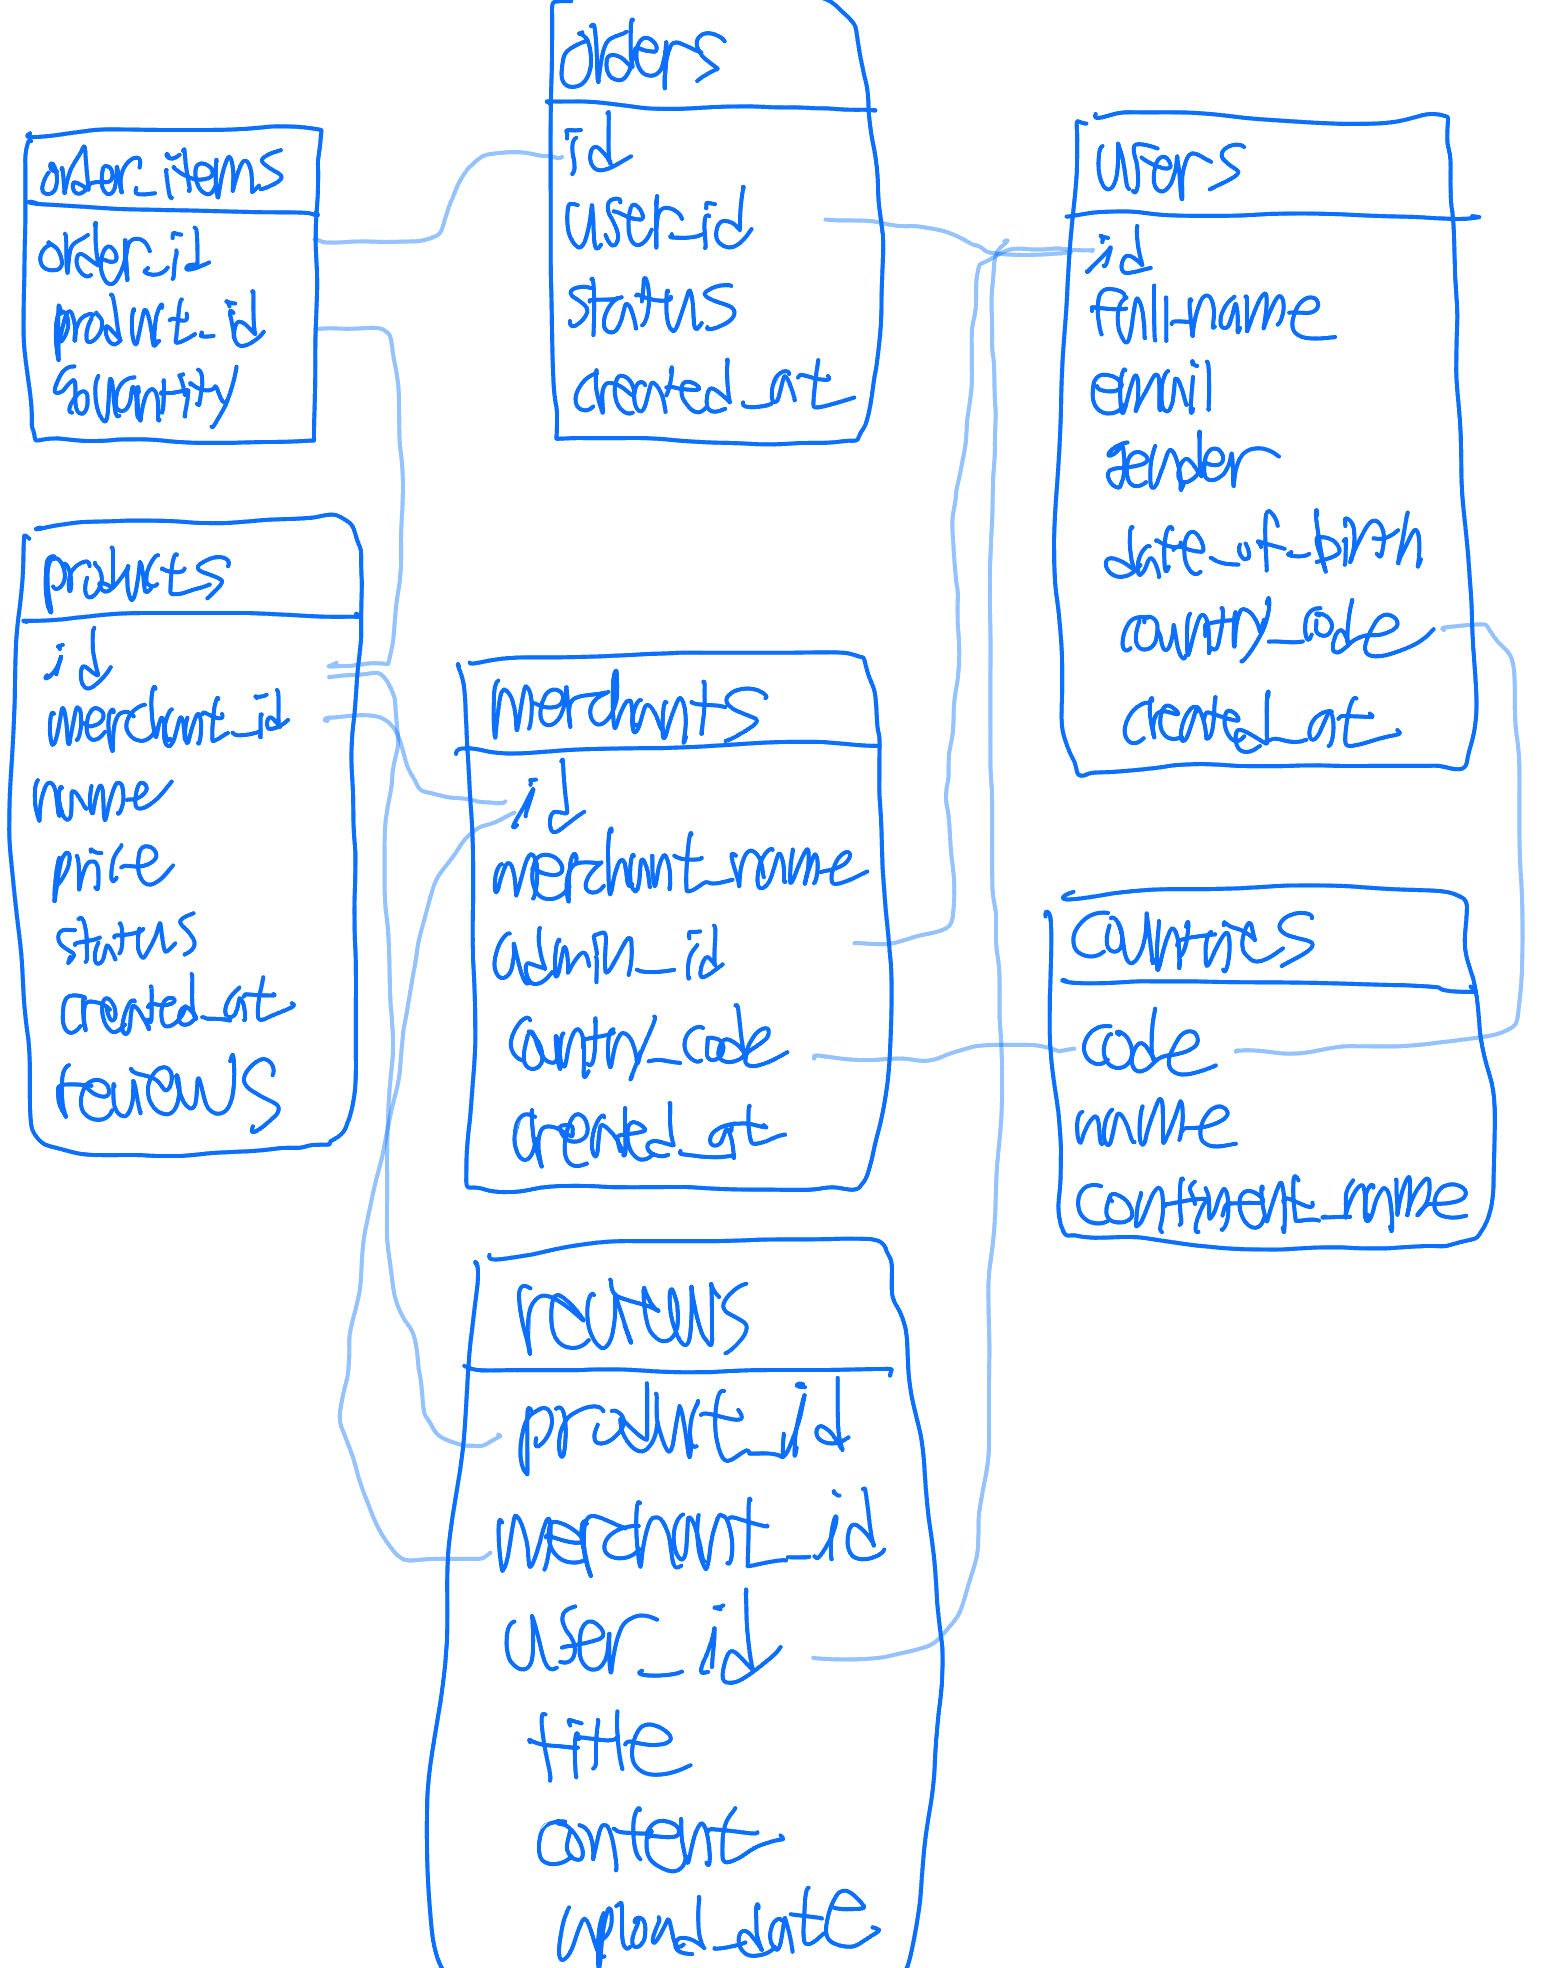 orders
id
user_id
status
created_at
order_items
order_id
product_id
quantity
users
id
full_name
email
gender
date_of_birth
country_code
created_at
products
id
merchant_id
name
price
status
created_at
reviews
merchants
id
merchant_name
admin_id
country_code
created_at
countries
code
name
continent_name
reviews
product_id
merchant_id
user_id
title
content
upload_date